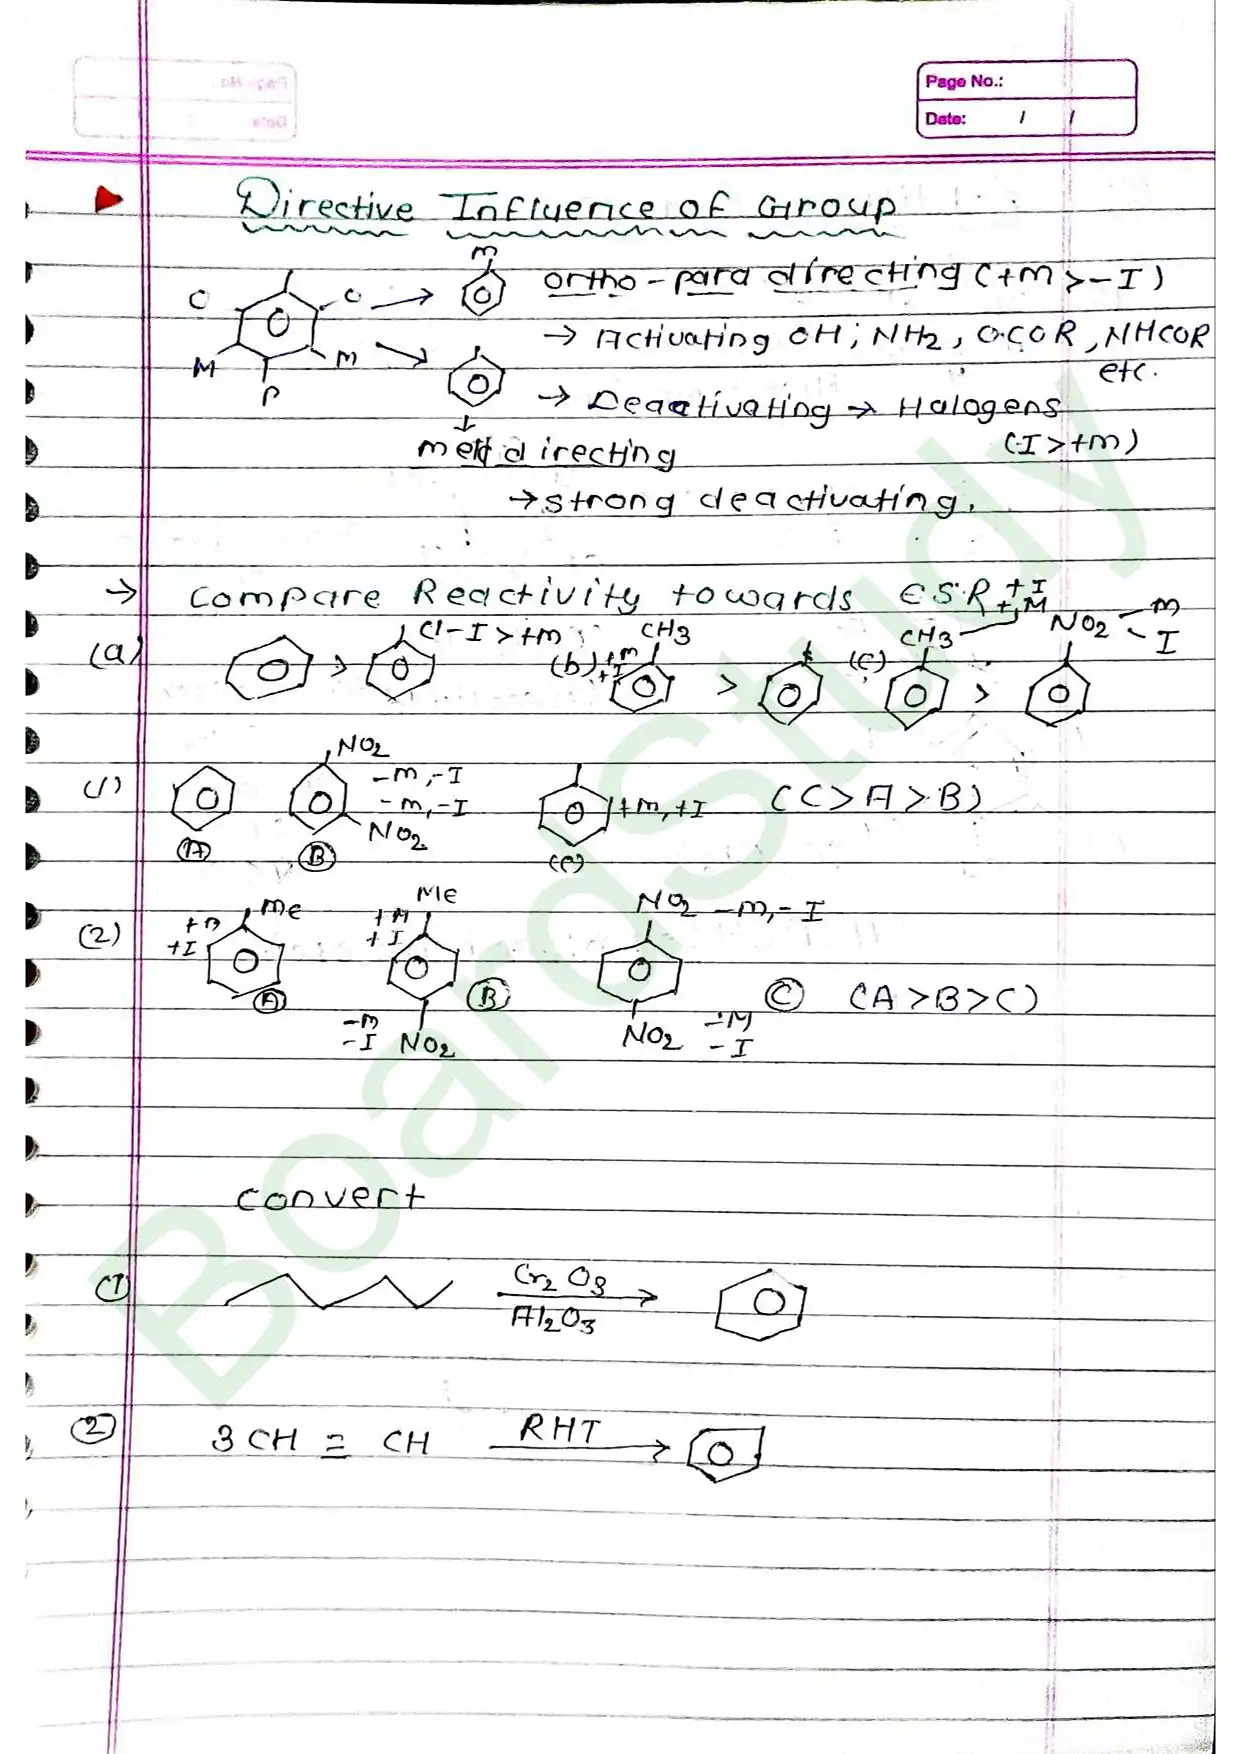 Page No.:
Date: / /
Directive Influence of Group
M
O O ortho-para directing (+M > -I)
→ Activating OH, NH2, OCOR, NHCOR
M M etc.
P → Deactivating → Halogens
meta directing (I > +m)
→ strong deactivating.
→ Compare Reactivity towards E.S.R +I
+M
(a) > Cl -I > +m (b) +m +I CH3 > (c) CH3 > NO2 -m -I
(1) NO2
-m, -I
-m, -I +m, +I (C > A > B)
NO2
(A) (B) (C)
(2) +m +I Me +M +I Me NO2 -m, -I
(A) (B) (C) (A > B > C)
-M -I NO2 NO2 -M -I
convert
(1) Cr2O3
Al2O3
(2) 3CH ≡ CH RHT
BoardStudy